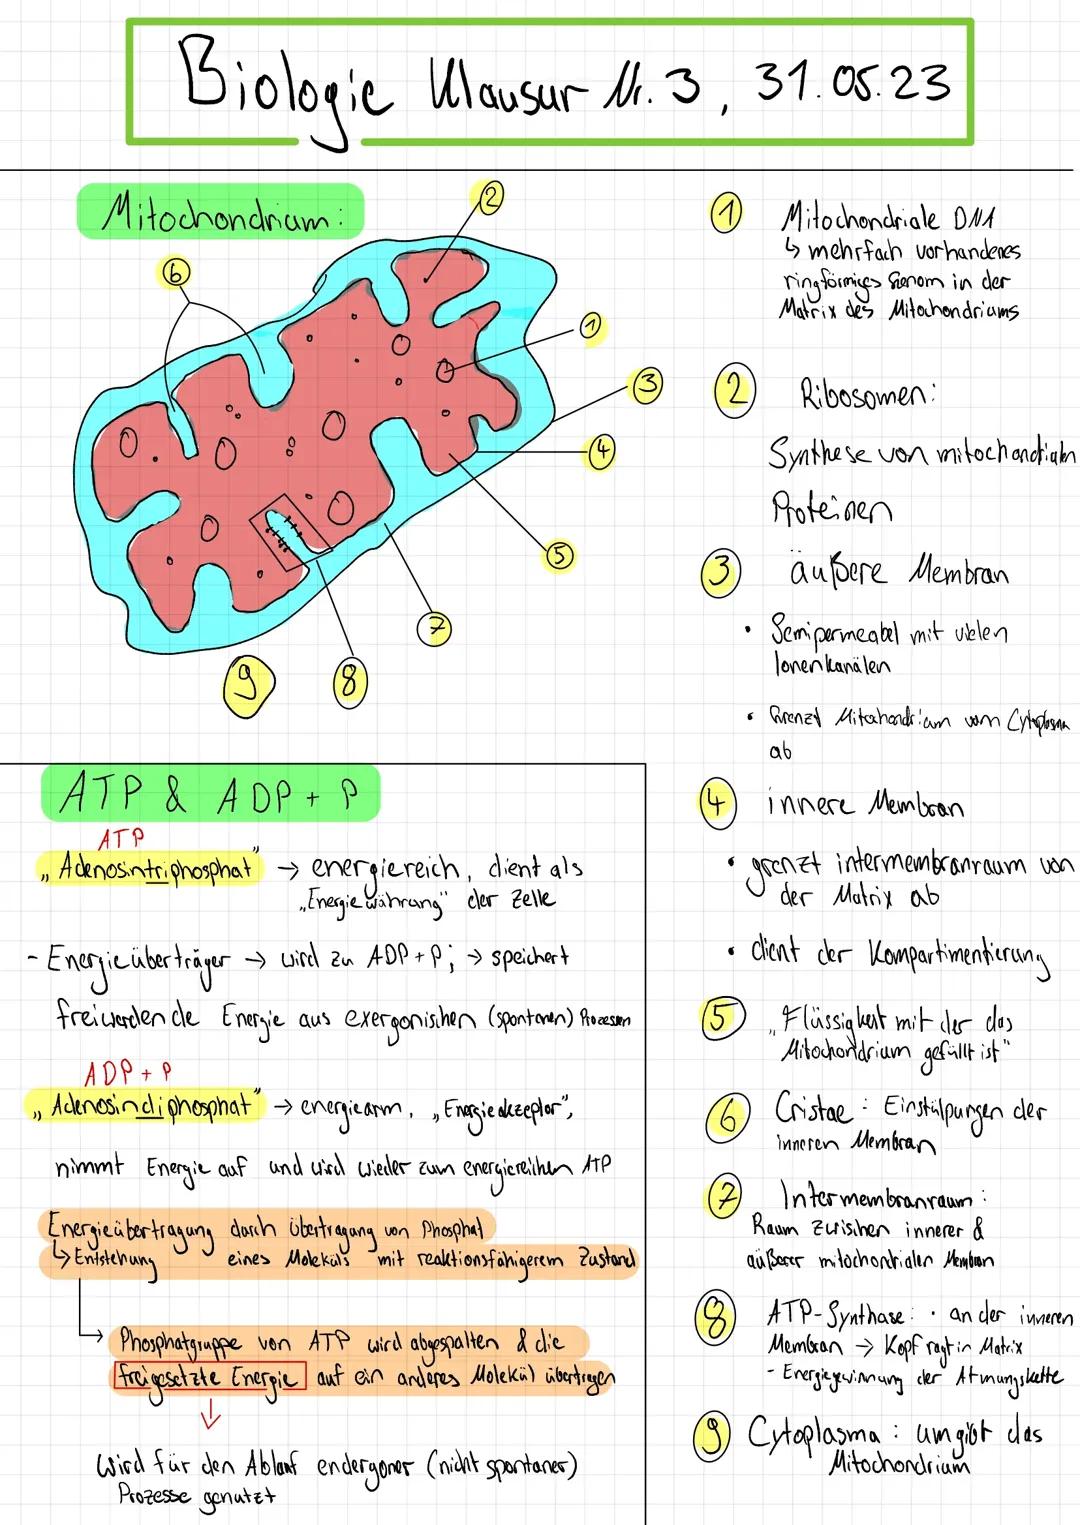 Biologie Klausur Nr. 3, 31.05.23
Mitochondrium:
2
6
1
3
4
5
7
8
9
1 Mitochondriale DNA
↳ mehrfach vorhandenes
ringförmiges Genom in der
Matrix des Mitochondriums
2 Ribosomen:
Synthese von mitochondrialen
Proteinen
3 äußere Membran
• Semipermeabel mit vielen
Ionenkanälen
• Grenzt Mitochondrium vom Cytoplasma
ab
4 innere Membran
• grenzt intermembranraum von
der Matrix ab
• dient der Kompartimentierung
5 „Flüssigkeit mit der das
Mitochondrium gefüllt ist"
6 Cristae: Einstülpungen der
inneren Membran
7 Intermembranraum:
Raum zwischen innerer &
äußerer mitochontrialen Membran
8 ATP-Synthase: • an der inneren
Membran → Kopf ragt in Matrix
- Energiegewinnung der Atmungskette
9 Cytoplasma: umgibt das
Mitochondrium
ATP & ADP + P
ATP
„Adenosintriphosphat" → energiereich, dient als
„Energiewährung" der Zelle
- Energieüberträger → wird zu ADP + P; → speichert
freiwerdende Energie aus exergonischen (spontanen) Prozessen
ADP + P
„Adenosindiphosphat" → energiearm, „Energieakzeptor",
nimmt Energie auf und wird wieder zum energiereichen ATP
Energieübertragung durch Übertragung von Phosphat
↳ Entstehung eines Moleküls mit reaktionsfähigerem Zustand
→ Phosphatgruppe von ATP wird abgespalten & die
freigesetzte Energie auf ein anderes Molekül übertragen
↓
Wird für den Ablauf endergoner (nicht spontaner)
Prozesse genutzt